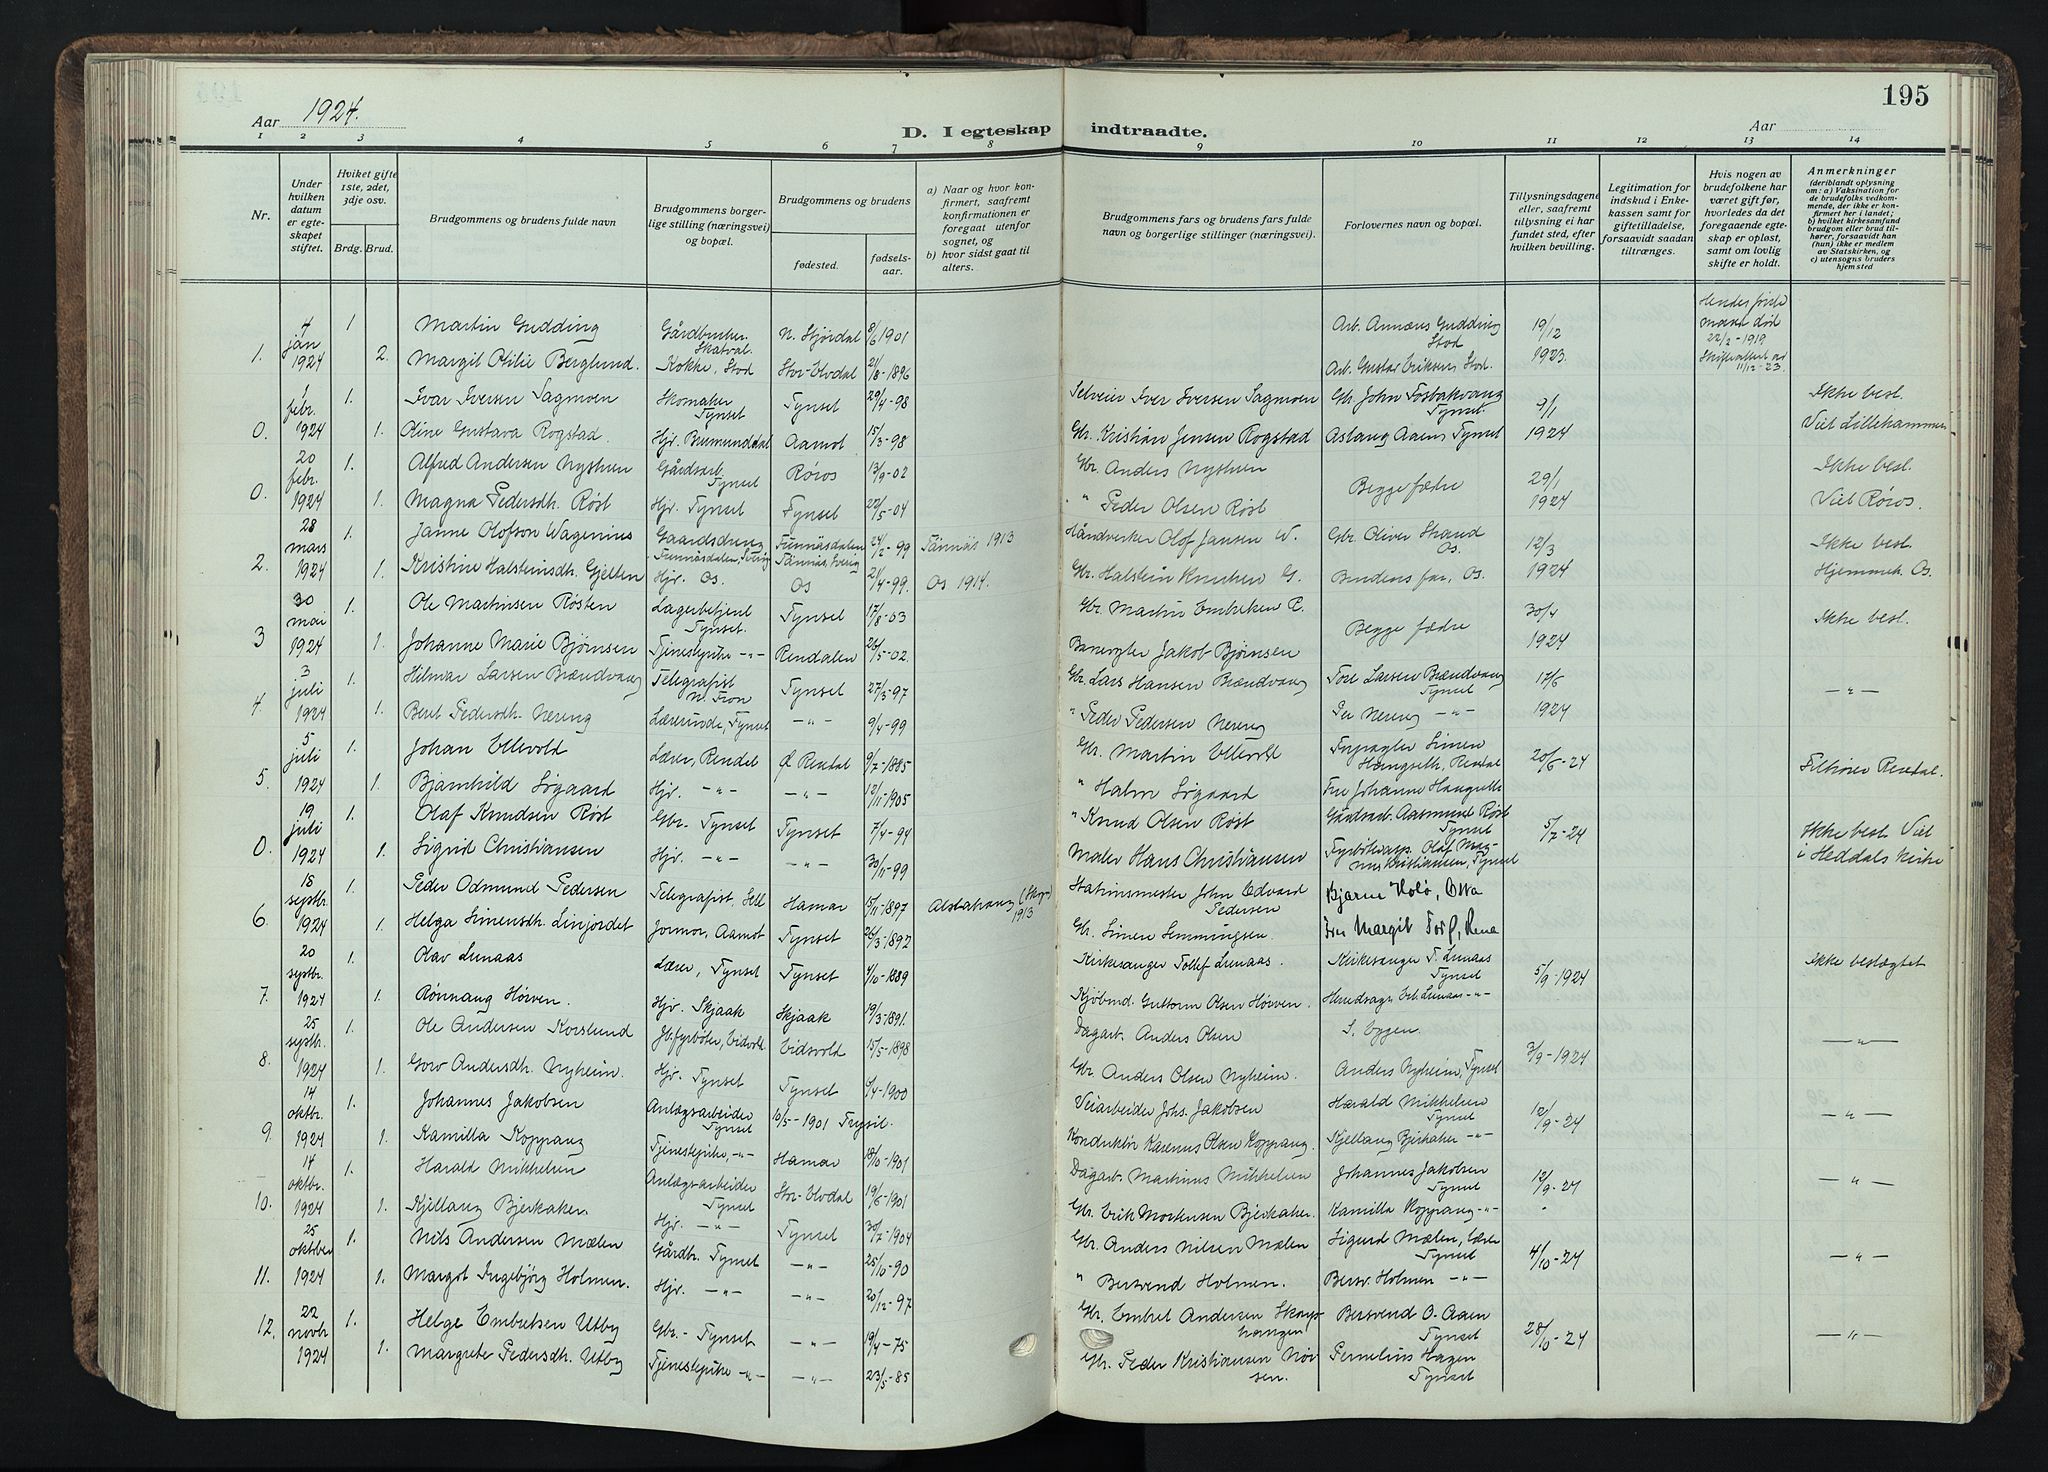 Aar 1924.
D. I egteskap indtraadte.
Aar
195
1 2 3 4 5 6 7 8 9 10 11 12 13 14
Nr.
Under hvilken datum er egte-skapet stiftet.
Hviket gifte 1ste, 2det, 3dje osv.
Brdg. Brud.
Brudgommens og brudens fulde navn
Brudgommens borger-lige stilling (næringsvei) og bopæl.
Brudgommens og brudens
fødested.
fødsels-aar.
a) Naar og hvor kon-firmert, saafremt konfirmationen er foregaat utenfor sognet, og
b) hvor sidst gaat til alters.
Brudgommens fars og brudens fars fulde navn og borgerlige stillinger (næringsvei).
Forlovernes navn og bopæl.
Tillysningsdagene eller, saafremt tillysning ei har fundet sted, efter hvilken bevilling.
Legitimation for indskud i Enke-kassen samt for giftetilladelse, forsaavidt saadan tiltrænges.
Hvis nogen av brudefolkene har været gift før, hvorledes da det foregaaende egte-skap er opløst, samt om lovlig skifte er holdt.
Anmerkninger
(deriblandt oplysning om: a) Vaksination for de brudefolks vedkom-mende, der ikke er kon-firmert her i landet; b) hvilket kirkesamfund brudgom eller brud til-hører, forsaavidt han (hun) ikke er medlem av Statskirken, og c) utensogns bruders hjemsted
1. 4 jan 1924 1. Martin Gudding Gårdbruker Skatval N. Stjørdal 8/6 1901 Arb. Annæus Gudding Stod 19/12 Hendes første mand død 22/2-1919
2. Margit Otilie Berglund. Kokke, Stod Stor-Elvdal 21/8-1896 Arb. Gustav Eriksen Stod. 1923. Skifteattest av 11/12-23.
0. 1 febr. 1924 1. Ivar Iversen Sagmoen Skomaker Tynset Tynset 29/4-98 Selveier Iver Iversen Sagmoen Gbr. John Fosbakvang Tynset. 9/1 Ikke besl.
1. Oline Gustava Rogstad. Hjv. Brumunddal Aamot 15/3-98 Gbr. Kristian Jensen Rogstad Aslaug Aaen Tynset 1924 Viet Lillehammer
0. 20 febr. 1924 1. Alfred Andersen Nyhuen Gårdsarb. Tynset Røros 13/9-02 Gbr. Anders Nyhuen Begge fædre 29/1 Ikke besl.
1. Magna Pedersdh. Røst Hjv. Tynset Tynset 22/5-04 " Peder Olsen Røst 1924 Viet Røros.
2. 28 mars 1924 1. Janne Olofson Wagenius Gaardsdreng Funnäsdalen, Sverig Funnäsdalen Tännäs, Sverig 24/2-99 Tännäs 1913 Håndverker Olof Jansen W. Gbr. Oliver Strand Os. 12/3 Ikke besl.
1. Kristine Halsteinsdh. Gjelten Hjv. Os. Os 21/4-99. Os 1914. Gbr. Halstein Knutsen G. Brudens far, Os. 1924 Hjemmeh. Os.
3 30 mai 1924 1. Ole Martinsen Røsten Lagerbetjent Tynset. Tynset 17/8-03 Gbr. Martin Embretsen R. Begge fædre 30/4 Ikke besl.
1. Johanne Marie Bjørnsen Tjenestepike -"- Rendalen 26/5-02. Banevogter Jakob Bjørnsen 1924
4. 3 juli 1924 1. Hilmar Larsen Brændvang Telegrafist N. Fron Tynset 27/3-97 Gbr. Lars Hansen Brændvang Tore Larsen Brændvang Tynset 17/6 -"-
1. Beret Pedersdh. Nereng Lærerinde, Tynset -"- 9/4-99 " Peder Pedersen Nereng Per Nereng -"- 1924
5. 5 juli 1924 1. Johan Ellevold Lærer, Rendal Ø. Rendal 9/7-1885 Gbr. Martin Ellevold Simen Haugseth, Rendal 20/6-24
1. Bjarnhild Søgaard Hjv. -"- -"- 12/11-1905 " Halm Søgaard Fru Johanne Haugseth Tilhører Rendal.
0. 19 juli 1924 1. Olaf Knudsen Røst Gbr. Tynset Tynset 7/4-94 " Knud Olsen Røst Gårdsarb. Aasmund Røst Tynset 5/7-24 Ikke besl. Viet
1. Sigrid Christiansen Hjv. -"- -"- 30/11-99 Maler Hans Christiansen Olaf Mag-nus Kristiansen, Tynset i Heddals Kirke
6. 18 septbr. 1924 1. Peder Odmund Pedersen Telegrafist, Sell Hamar 15/11-1897 Alstahaug (Skogn) 1913 Stationsmester John Edvard Pedersen Bjarne Holø, Otta
1. Helga Simensdh. Linjordet Jormor, Aamot Tynset 26/3-1892 Gbr. Simen Semmingsen. Fru Margit Torp, Rena
7. 20 septbr. 1924 1. Olav Lunaas Lærer, Tynset Tynset 4/10-1889 Kirkesanger Tollef Lunaas. Kirkesanger T. Lunaas Tynset 5/9-1924 Ikke beslægtet
1. Rønnaug Hørven. Hjv. Skjaak Skjaak 19/3-1891. Kjøbmd. Guttorm Olsen Hørven. Lunaas -"-
8. 25 septbr. 1924 1. Ole Andersen Korslund Jb.fyrbøter, Eidsvold Eidsvold 15/5-1898 Dagarb. Anders Olsen S. Eggen. 3/9-1924 -"-
1. Goro Andersdh. Nyheim. Hjv. Tynset Tynset 5/4-1900 Gbr. Anders Olsen Nyheim. Anders Nyheim, Tynset
9. 14 oktbr. 1924 1. Johannes Jakobsen Anlægsarbeider Tynset 10/5-1901 Trysil. Veiarbeider Johs. Jakobsen Harald Mikkelsen Tynset 12/9-24 -"-
1. Kamilla Koppang Tjenestepike, -"- Hamar 18/10-1901 Konduktør Karenus Olsen Koppang. Kjellaug Bjerkaker -"-
10. 14 oktbr. 1924 1. Harald Mikkelsen Anlægsarbeider Tynset Stor-Elvdal 19/6-1901 Dagarb. Martinus Mikkelsen Johannes Jakobsen Tynset 12/9-24 -"-
1. Kjellaug Bjerkaker. Hjv. -"- Tynset 30/7-1904 Gbr. Erik Mortensen Bjerkaker. Kamilla Koppang -"-
11. 25 oktber 1924 1. Nils Andersen Mælen Gårdbr. Tynset -"- 25/10-90 Gbr. Anders Nilsen Mælen Sigurd Mælen, Tynset 4/10-24 -"-
1. Margot Ingebjørg Holmen. Hjv. -"- -"- 20/12-97 " Bersvend Holmen. Bersv. Holmen -"-
12. 22 novbr 1924 1. Helge Embretsen Utby Gbr. - Tynset -"- 19/4-75 Gbr. Embret Andersen Bersvend O. Aaen Tynset 28/10-24 -"-
1. Margrete Pedersdh. Utby Tjenestepike -"- -"- 23/5-85 Gbr. Peder Kristiansen Pernelius Hagen Tynset